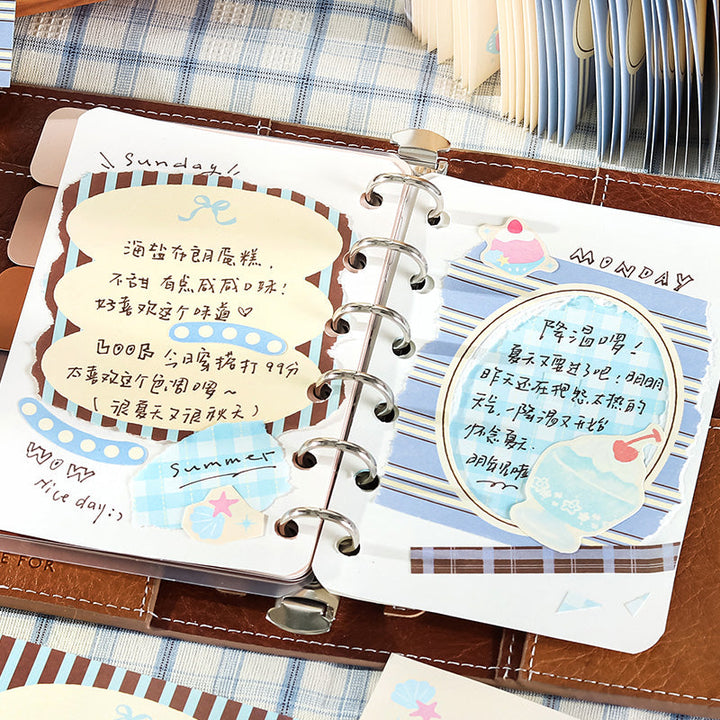 Sunday
海盐布朗蛋糕，
不甜 有点咸咸口味！
好喜欢这个味道♡
今日蜜搭打 99分
太喜欢这个色调啰～
（很夏天又很秋天）
WOW
Nice day :)
summer
MONDAY
降温啰！
夏天又要过了吧！明明
昨天还在抱怨太热的
天气，降温又开始
怀念夏天
E FOR